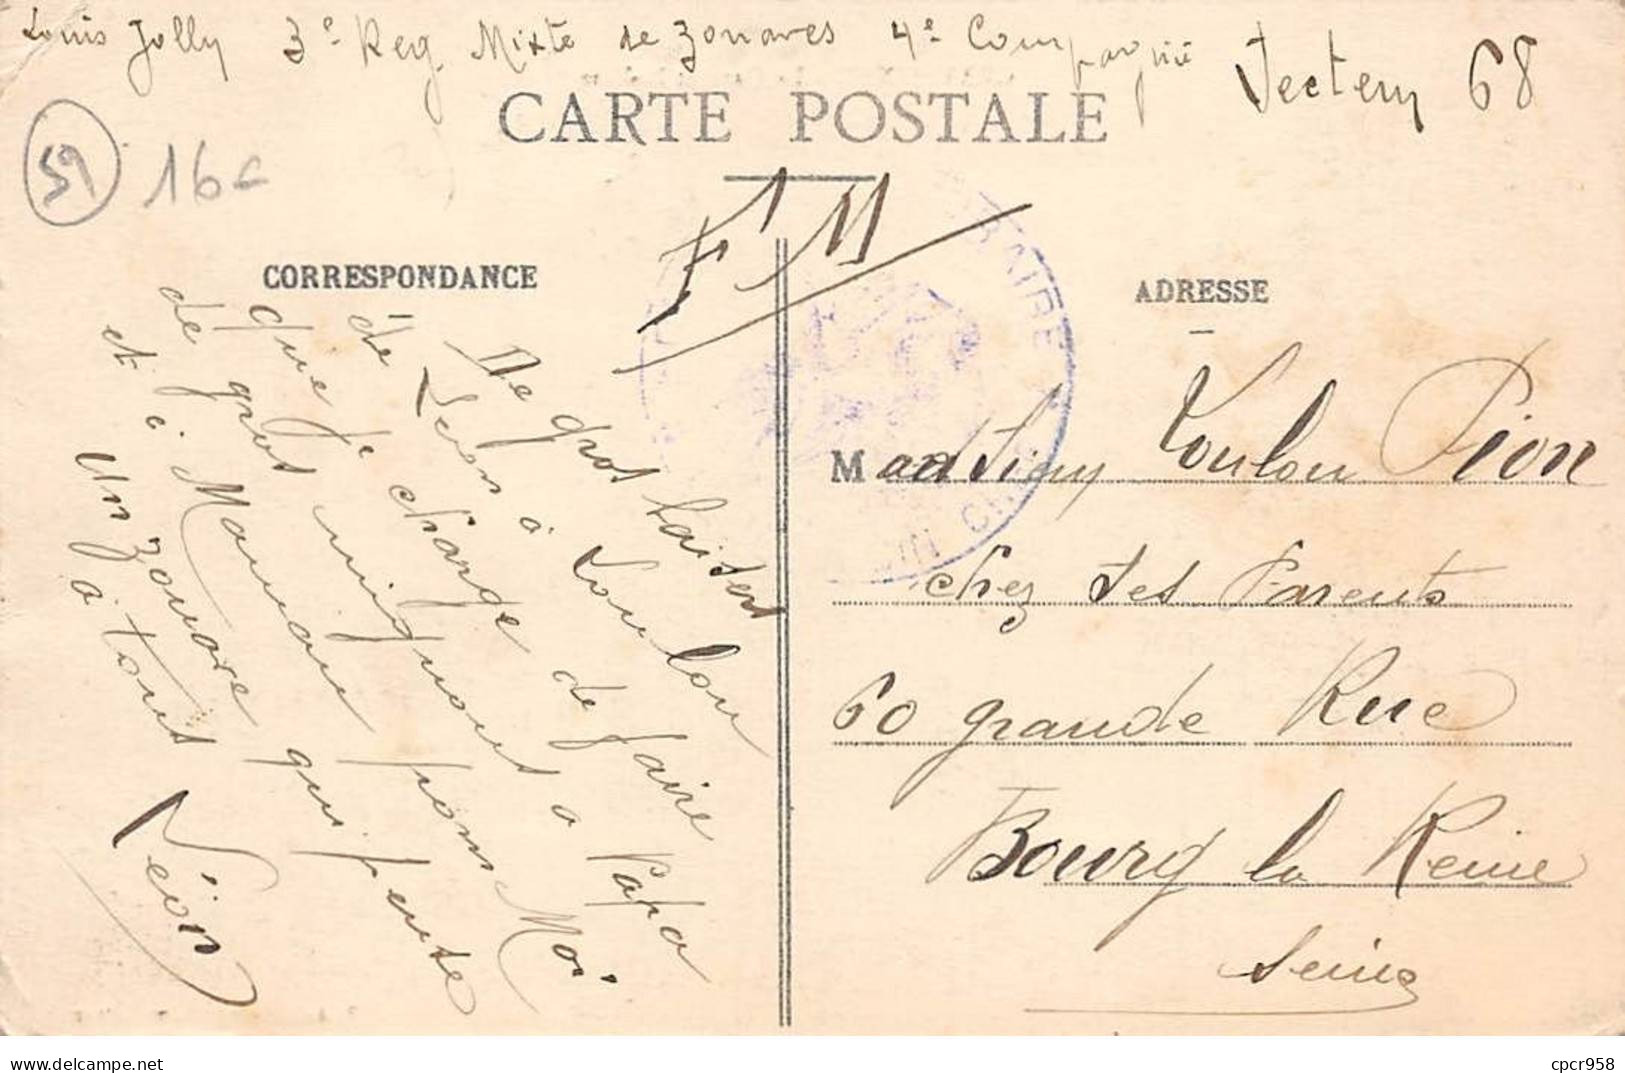 Louis Jolly 3e Reg Mixte de Zouaves 4e Compagnie Secteur 68
CARTE POSTALE
59 16
F M
CORRESPONDANCE
De gros baisers
de Léon à Loulou
que je charge de faire
de gros mignons a Papa
et à Maman pour Moi
un Zouave qui pense
à tous
Léon
ADRESSE
M Loulou Pion
chez ses Parents
60 grande Rue
Bourg la Reine
Seine
cpcr958